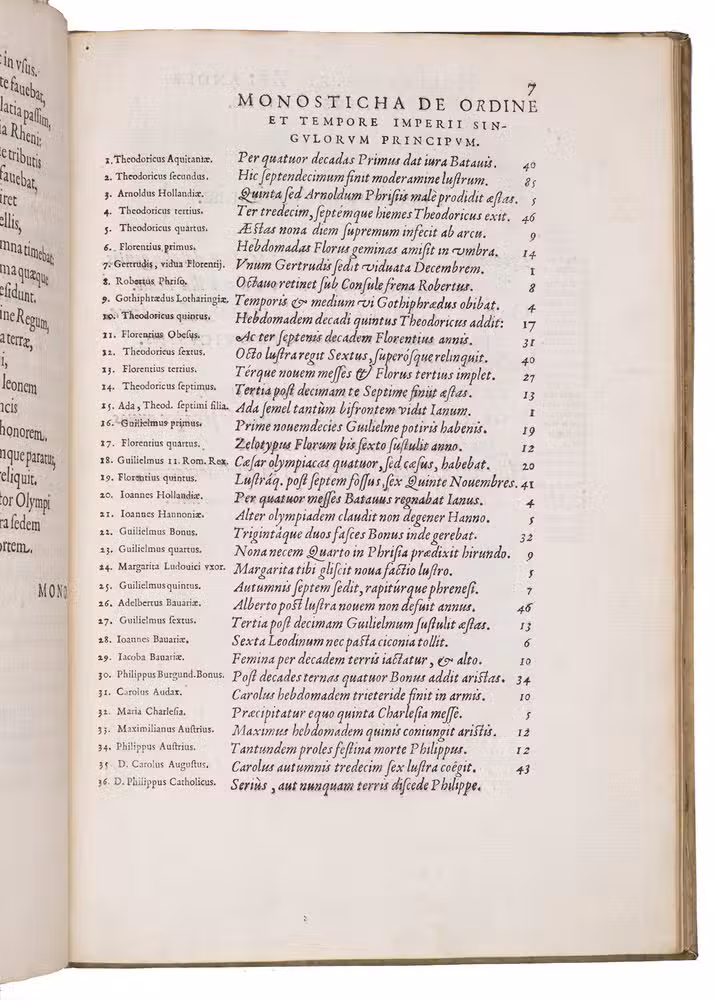 in vsus.
te fauebat,
latia passim,
ia Rheni:
e tributis
fauebat,
iret
ellis,
mna timebat
ma quæque
esidunt.
ine Regum,
a terræ,
i,
leonem
ncis
honorem.
nque paratus,
reliquit.
tor Olympi
ra sedem
ortem.
MONO
7
MONOSTICHA DE ORDINE
ET TEMPORE IMPERII SIN-
GVLORVM PRINCIPVM.
1. Theodoricus Aquitaniæ. Per quatuor decadas Primus dat iura Batauis. 40
2. Theodoricus secundus. Hic septendecimum finit moderamine lustrum. 85
3. Arnoldus Hollandiæ. Quinta sed Arnoldum Phrisiis malè prodidit æstas. 5
4. Theodoricus tertius. Ter tredecim, septémque hiemes Theodoricus exit. 46
5. Theodoricus quartus. Æstas nona diem supremum infecit ab arcu. 9
6. Florentius primus. Hebdomadas Florus geminas amisit in vmbra. 14
7. Gertrudis, vidua Florentij. Vnum Gertrudis sedit viduata Decembrem. 1
8. Robertus Phriso. Octauo retinet sub Consule frena Robertus. 8
9. Gothiphrædus Lotharingiæ. Temporis & medium vi Gothiphrædus obibat. 4
10. Theodoricus quintus. Hebdomadem decadi quintus Theodoricus addit: 17
11. Florentius Obesus. Ac ter septenis decadem Florentius annis. 31
12. Theodoricus sextus. Octo lustra regit Sextus, superósque relinquit. 40
13. Florentius tertius. Térque nouem messes & Florus tertius implet. 27
14. Theodoricus septimus. Tertia post decimam te Septime finiit æstas. 13
15. Ada, Theod. septimi filia. Ada semel tantùm bifrontem vidit Ianum. 1
16. Guilielmus primus. Prime nouemdecies Guilielme potiris habenis. 19
17. Florentius quartus. Zelotypus Florum bis sexto sustulit anno. 12
18. Guilielmus 11. Rom. Rex. Cæsar olympiacas quatuor, sed cæsus, habebat. 20
19. Florentius quintus. Lustráq. post septem fossus, sex Quinte Nouembres. 41
20. Ioannes Hollandiæ. Per quatuor messes Batauus regnabat Ianus. 4
21. Ioannes Hannoniæ. Alter olympiadem claudit non degener Hanno. 5
22. Guilielmus Bonus. Trigintáque duos fasces Bonus inde gerebat. 32
23. Guilielmus quartus. Nona necem Quarto in Phrisia prædixit hirundo. 9
24. Margarita Ludouici vxor. Margarita tibi gliscit noua factio lustro. 5
25. Guilielmus quintus. Autumnis septem sedit, rapitúrque phrenesi. 7
26. Adelbertus Bauariæ. Alberto post lustra nouem non defuit annus. 46
27. Guilielmus sextus. Tertia post decimam Guilielmum sustulit æstas. 13
28. Ioannes Bauariæ. Sexta Leodinum nec pasta ciconia tollit. 6
29. Iacoba Bauariæ. Femina per decadem terris iactatur, & alto. 10
30. Philippus Burgund. Bonus. Post decades ternas quatuor Bonus addit aristas. 34
31. Carolus Audax. Carolus hebdomadem trieteride finit in armis. 10
32. Maria Charlesia. Præcipitatur equo quinta Charlesia messe. 5
33. Maximilianus Austrius. Maximus hebdomadem quinis coniungit aristis. 12
34. Philippus Austrius. Tantundem proles festina morte Philippus. 12
35 D. Carolus Augustus. Carolus autumnis tredecim sex lustra coëgit. 43
36. D. Philippus Catholicus. Seriùs, aut nunquam terris discede Philippe.